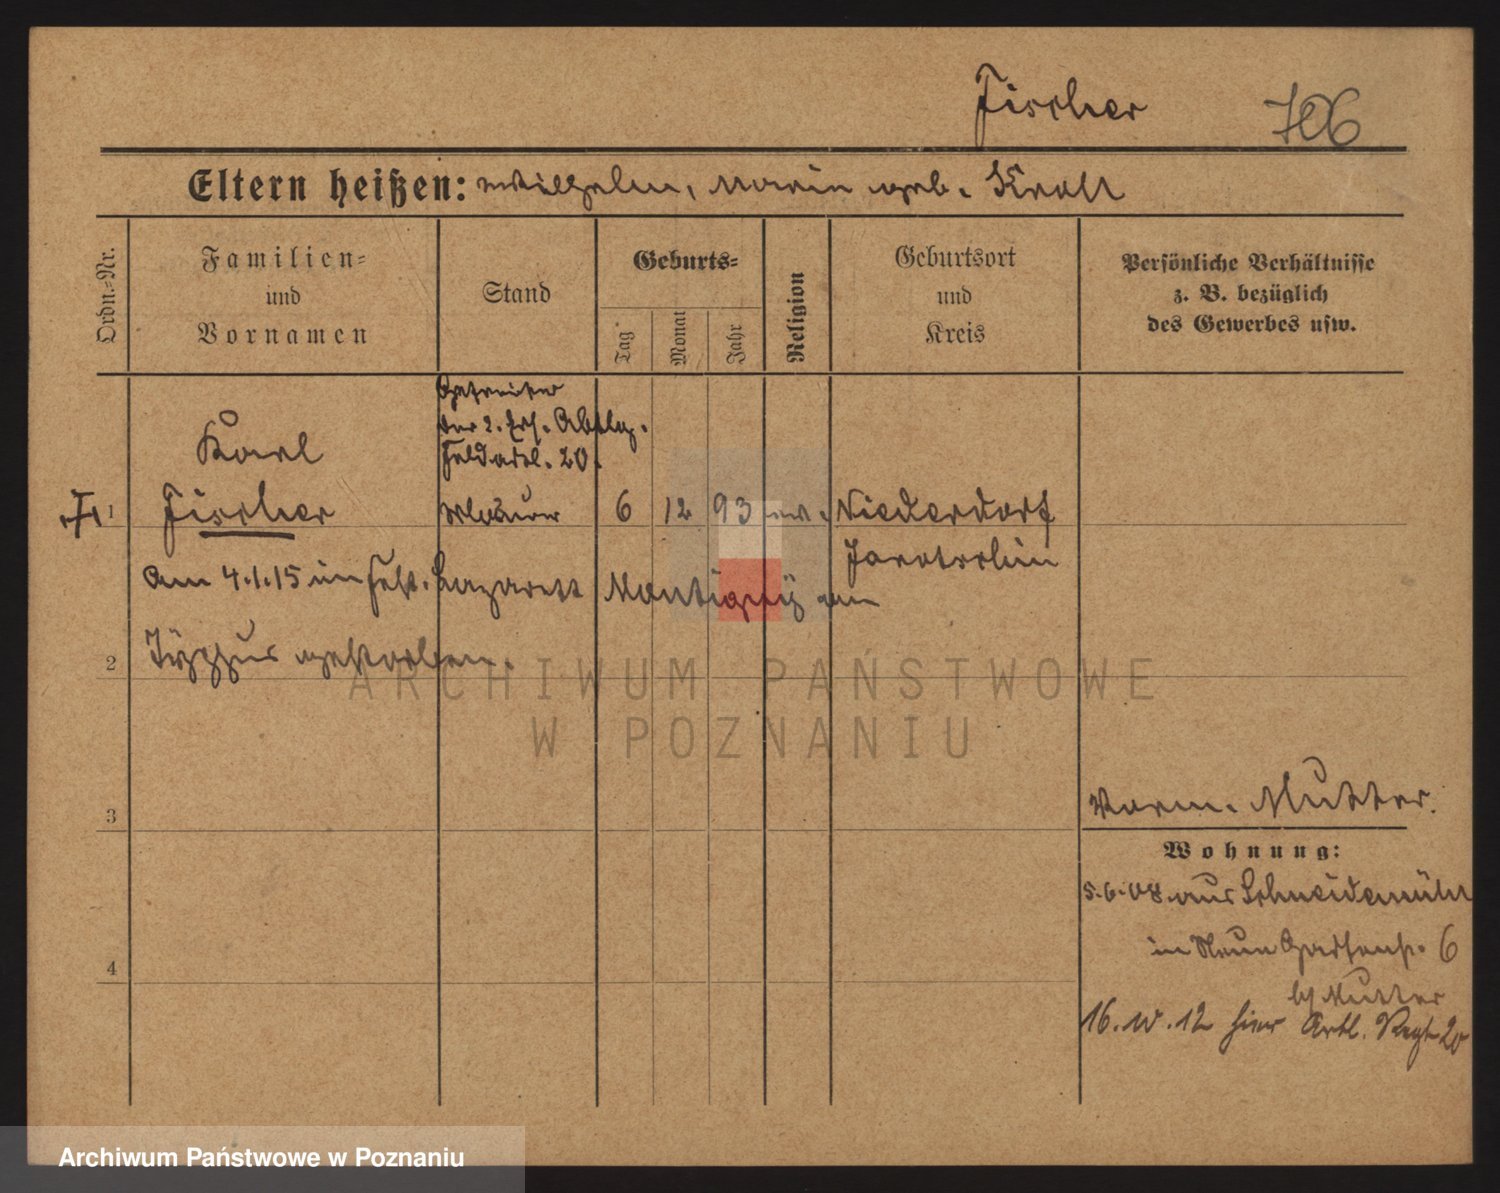 Fischer 706
Eltern heißen: Wilhelm, Marie geb. Kroll
Ordn.-Nr.
Familien-
und
Vornamen
Stand
Geburts-
Tag
Monat
Jahr
Religion
Geburtsort
und
Kreis
Persönliche Verhältnisse
z. B. bezüglich
des Gewerbes usw.
Gefreiter
der 2. Ers. Abtlg.
Feldartl. 20.
Karl
1 Fischer Maurer 6 12 93 ev. Niederdorf
Jarotschin
Am 4.1.15 im Fest. Lazarett Montigny an
Typhus gestorben.
2
ARCHIWUM PAŃSTWOWE
W POZNANIU
Vorm. Mutter.
3
Wohnung:
5.6.08 aus Schneidemühl
in Neue Gartenstr. 6
4
bei Mutter
16. 10. 12 hier Artl. Regt 20
Archiwum Państwowe w Poznaniu